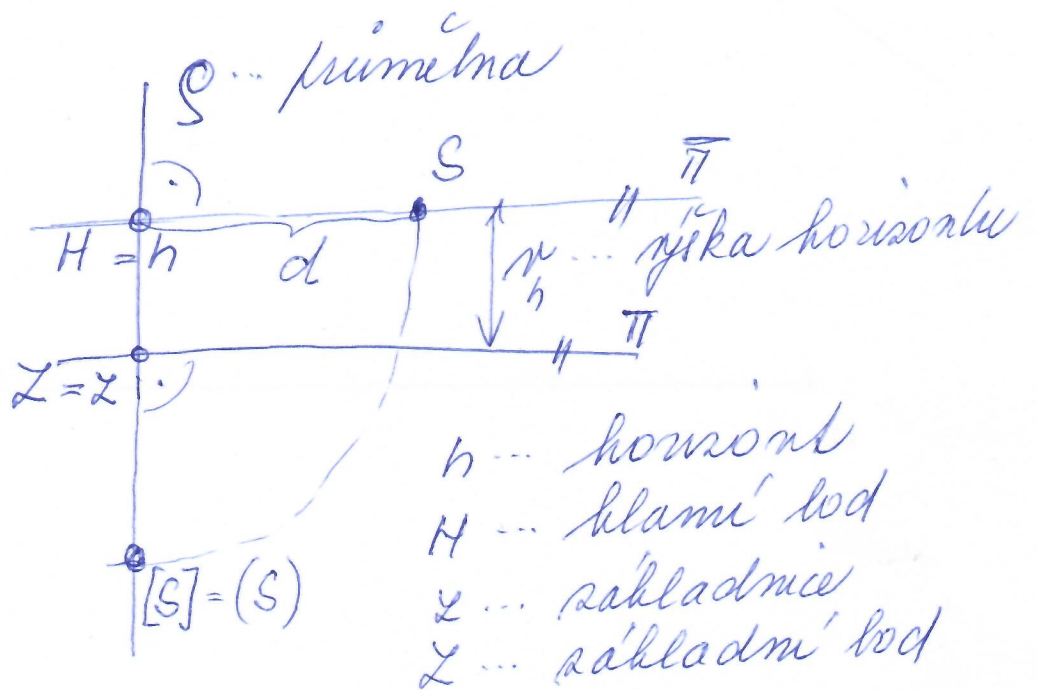 ρ ... průmětna
S
π̅
H = h
d
v_h ... výška horizontu
π
Z = z
h ... horizont
H ... hlavní bod
[S] = (S)
z ... základnice
Z ... základní bod